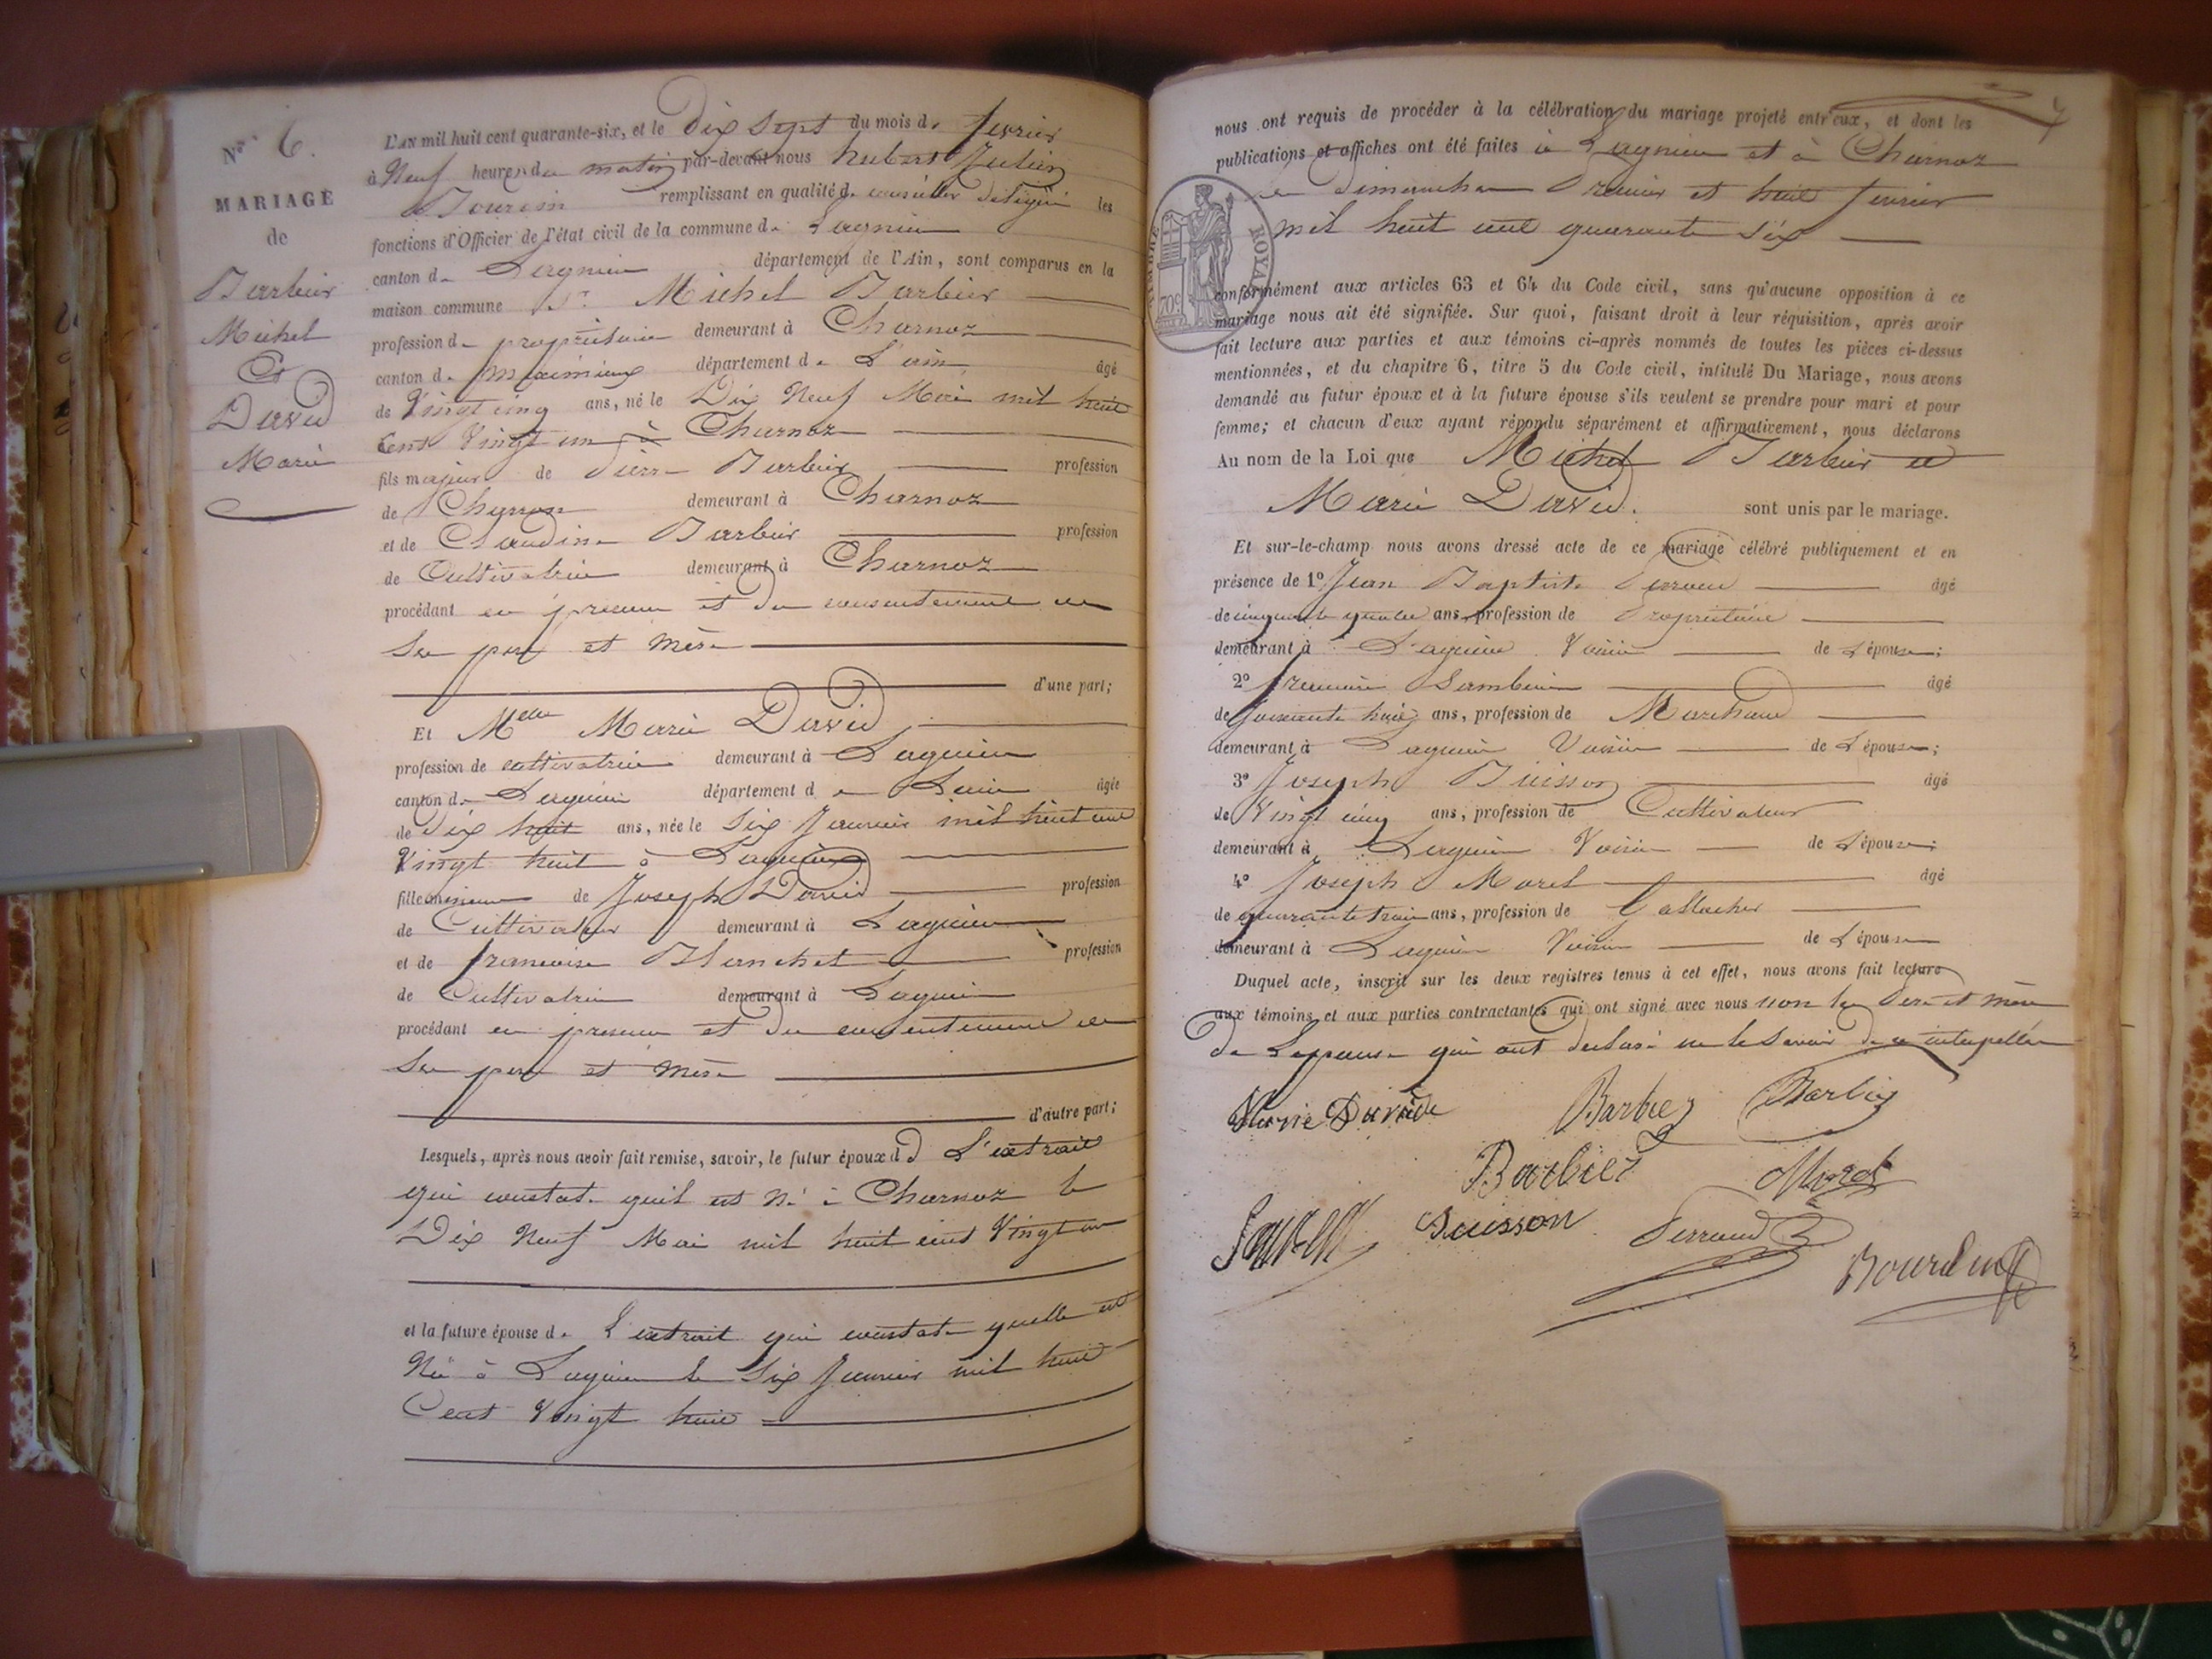 N° 6.
MARIAGE
de
Barbier
Michel
Et
David
Marie
L'AN mil huit cent quarante-six, et le Dix Sept du mois de fevrier
à Neuf heures du matin par-devant nous hubert Julien
remplissant en qualité de conseiller délégué les
fonctions d'Officier de l'état civil de la commune de Lagnieu
canton de Lagnieu département de l'Ain, sont comparus en la
maison commune Sr Michel Barbier
profession de propriétaire demeurant à Charnoz
canton de Meximieux département de L'ain âgé
de Vingt cinq ans, né le Dix Neuf Mai mil huit
Cent Vingt un à Charnoz
fils majeur de Pierre Barbier profession
de Charron demeurant à Charnoz
et de Claudine Barbier profession
de Cultivatrice demeurant à Charnoz
procédant en presence et du consentement de
Ses pere et mère
d'une part;
Et Melle Marie David
profession de cultivatrice demeurant à Lagnieu
canton de Lagnieu département de Lain âgée
de dix huit ans, née le Six Janvier mil huit cent
Vingt huit à Lagnieu
fille mineure de Joseph David profession
de Cultivateur demeurant à Lagnieu
et de francoise Blanchet profession
de Cultivatrice demeurant à Lagnieu
procédant en presence et du consentement de
Ses pere et mère
d'autre part;
Lesquels, après nous avoir fait remise, savoir, le futur époux d L'extrait
qui constate quil est Né à Charnoz le
Dix Neuf Mai mil huit cent Vingt un
et la future épouse de L'extrait qui constate quelle est
Née à Lagnieu le Six Janvier mil huit
Cent Vingt huit
nous ont requis de procéder à la célébration du mariage projeté entr'eux, et dont les
publications et affiches ont été faites à Lagnieu et à Charnoz
Dimanches Premier et huit fevrier
mil huit cent quarante six
TIMBRE ROYAL
70c
conformément aux articles 63 et 64 du Code civil, sans qu'aucune opposition à ce
mariage nous ait été signifiée. Sur quoi, faisant droit à leur réquisition, après avoir
fait lecture aux parties et aux témoins ci-après nommés de toutes les pièces ci-dessus
mentionnées, et du chapitre 6, titre 5 du Code civil, intitulé Du Mariage, nous avons
demandé au futur époux et à la future épouse s'ils veulent se prendre pour mari et pour
femme; et chacun d'eux ayant répondu séparément et affirmativement, nous déclarons
Au nom de la Loi que Michel Barbier et
Marie David. sont unis par le mariage.
Et sur-le-champ nous avons dressé acte de ce mariage célébré publiquement et en
présence de 1° Jean Baptiste Perraud âgé
de cinquante quatre ans, profession de Propriétaire
demeurant à Lagnieu Voisin de L'épouse;
2° âgé
de soixante huit ans, profession de Marchand
demeurant à Lagnieu Voisin de L'épouse;
3° Joseph Buisson âgé
de Vingt cinq ans, profession de Cultivateur
demeurant à Lagnieu Voisin de L'épouse;
4° Joseph Morel âgé
de quarante trois ans, profession de
demeurant à Lagnieu Voisin de L'épouse
Duquel acte, inscrit sur les deux registres tenus à cet effet, nous avons fait lecture
aux témoins et aux parties contractantes qui ont signé avec nous non les Pere et mère
de Lepouse qui ont declaré ne le Savoir de ce interpellés
Marie Davide Barbier Barbier
Barbier Morel
Buisson Perraud